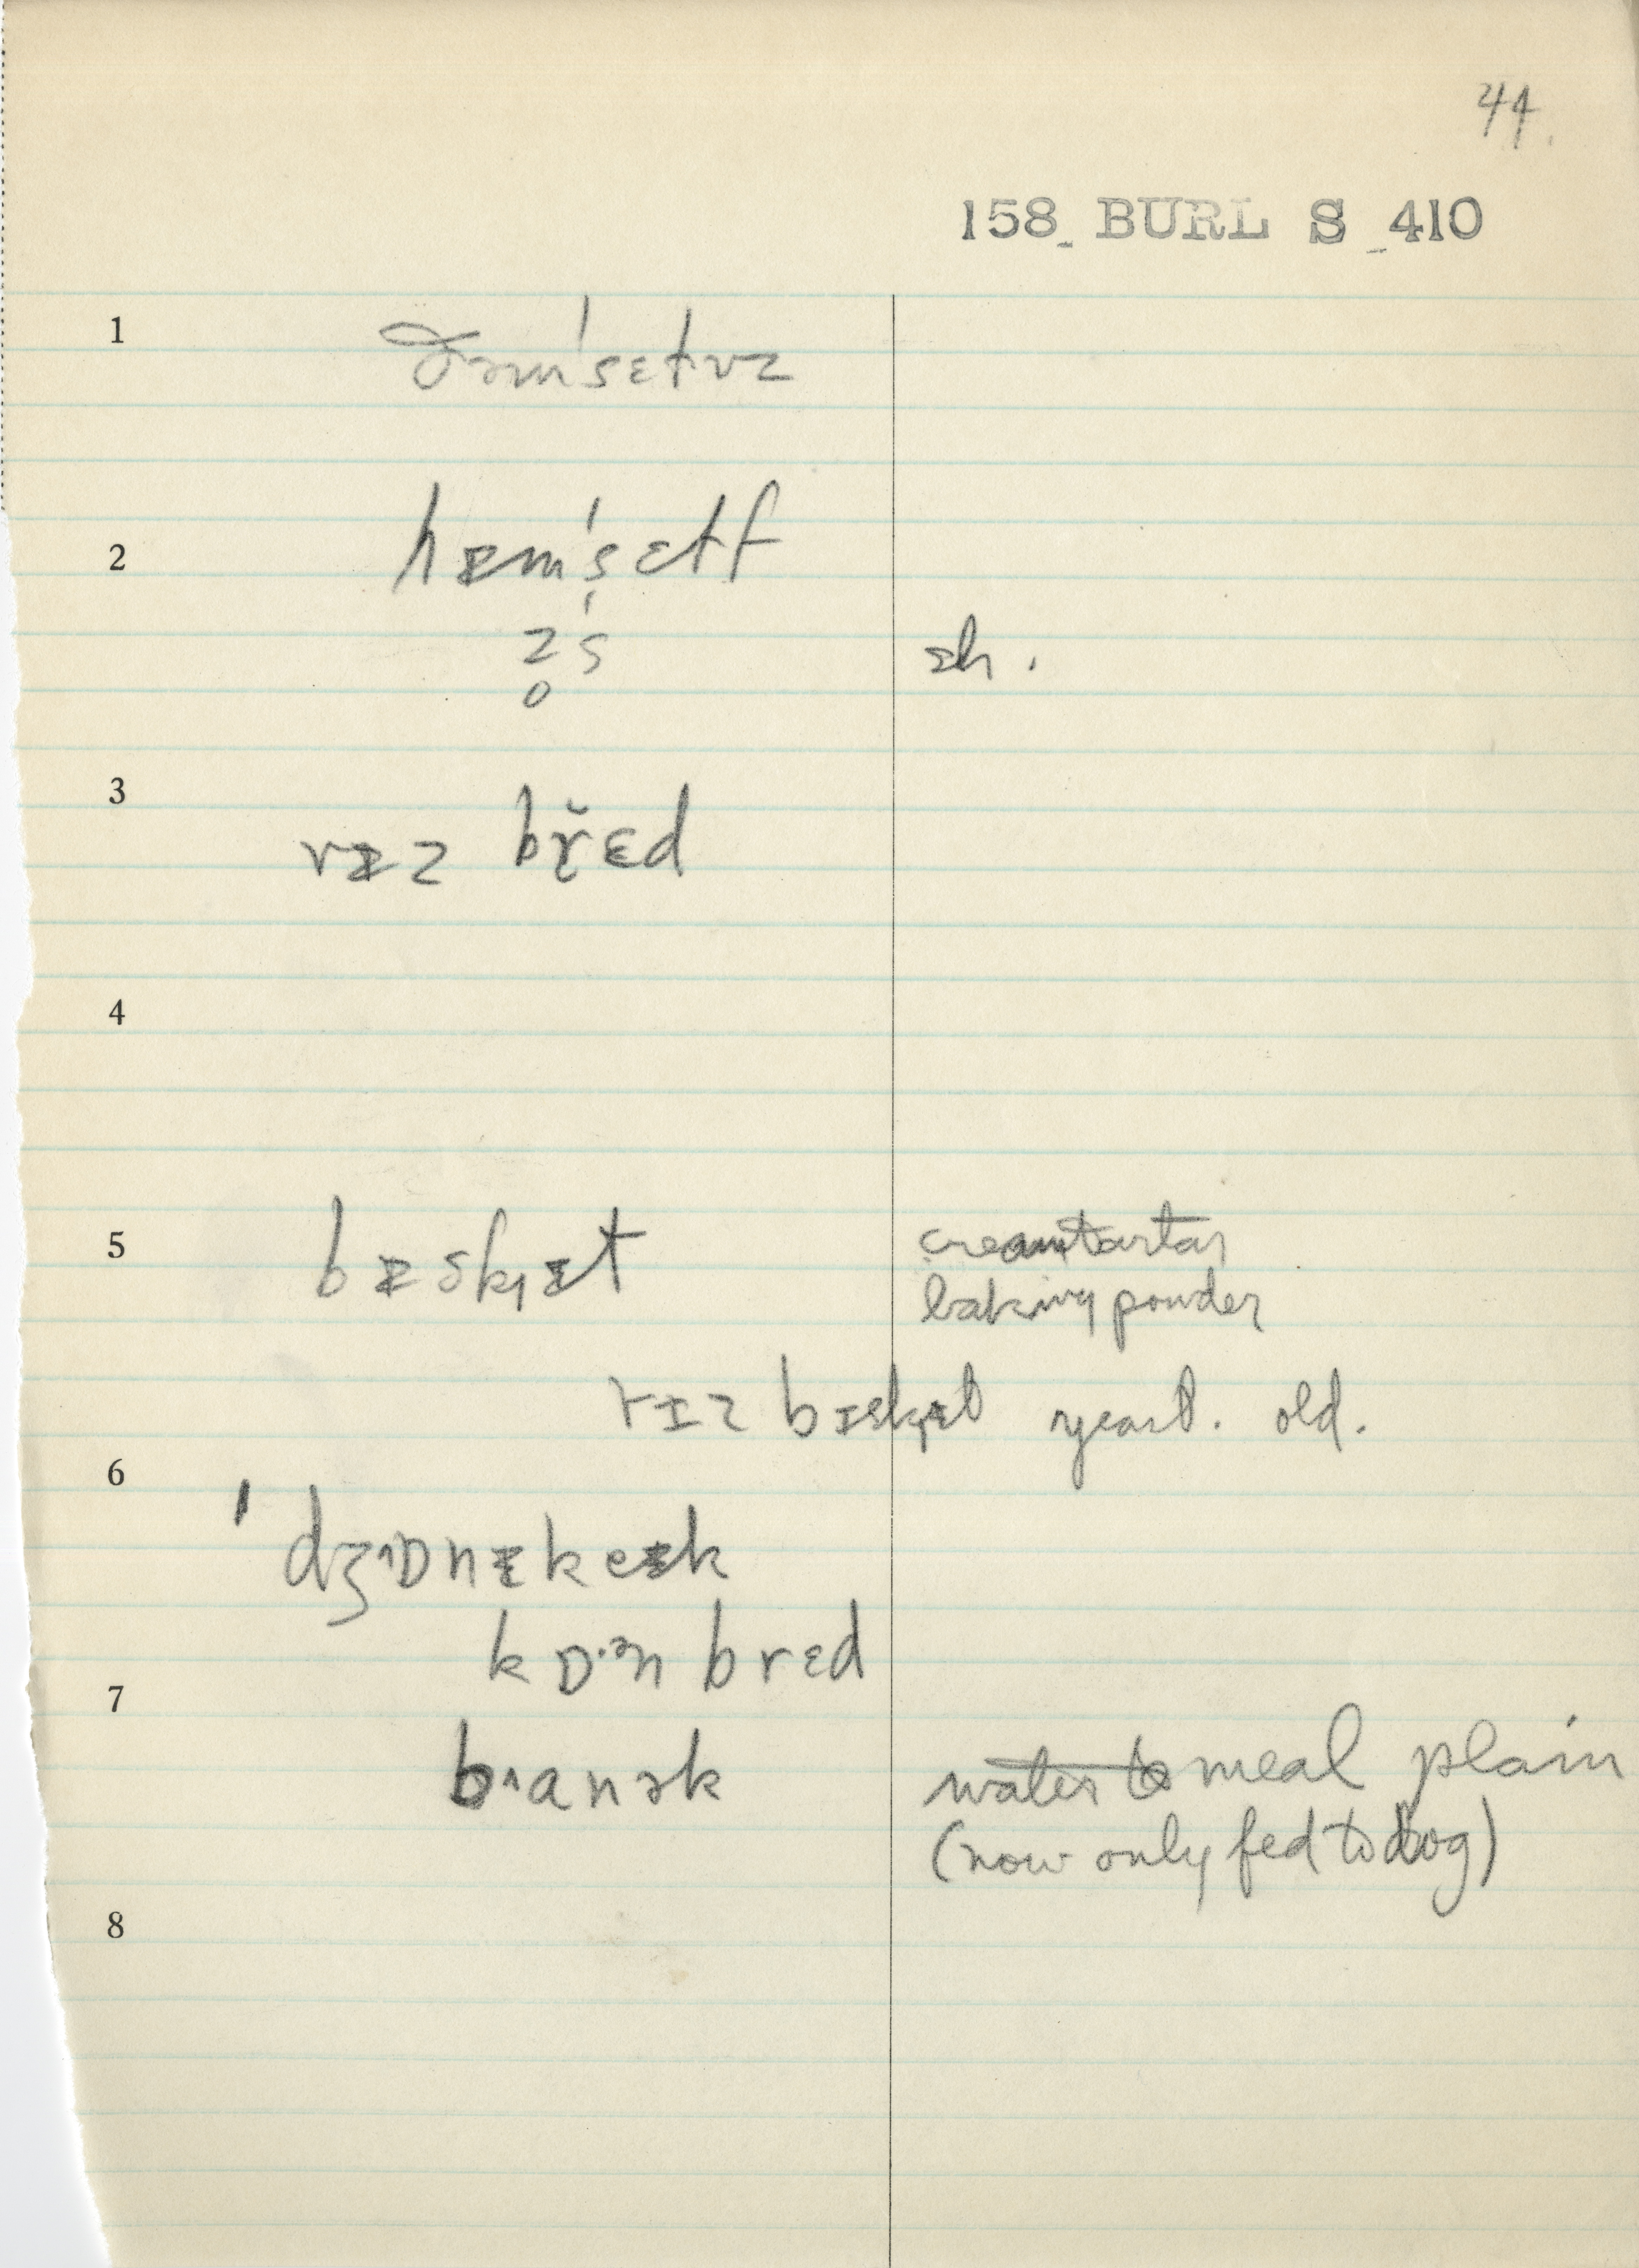 44.
158 BURL S 410
1 ðəm'sɛtvz
2 hᵻm'sɛtf
z̥'s sh.
3 rᵻz bř̨ɛd
4
5 bᵻskᵻt creamtartar
baking powder
rᵻz bᵻskᵻt yeast. old.
6
'dʒɒnᵻkeᵻk
kɒ·ᵊn brɛd
7
b˄anək ~~water to~~ meal plain
(now only fed to dog)
8